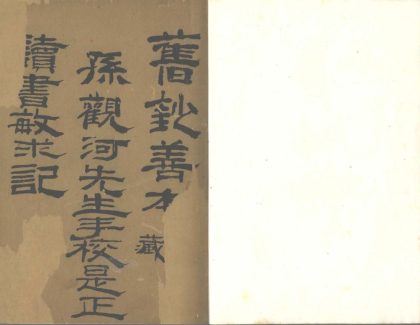 舊鈔善本
藏
孫觀河先生手校是正
讀書敏求記